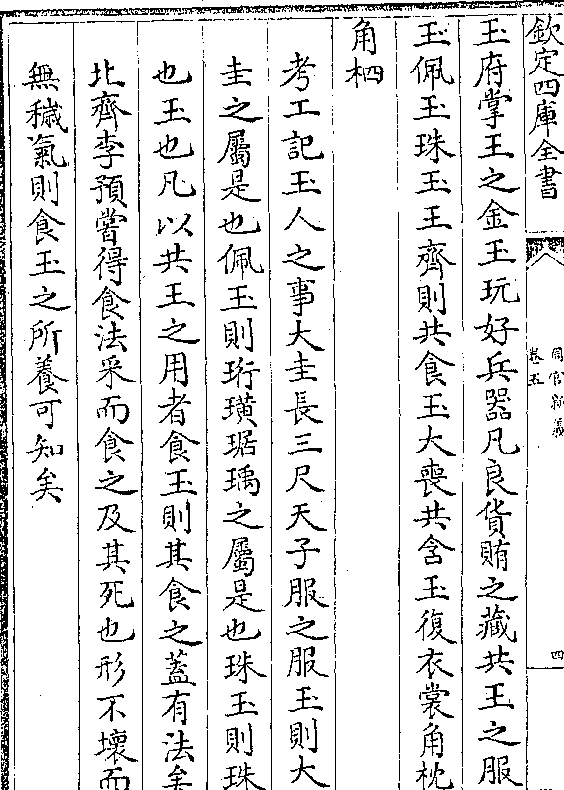 欽定四庫全書
周官新義
卷五
四
玉府掌王之金玉玩好兵器凡良貨賄之藏共王之服
玉佩玉珠玉王齊則共食玉大喪共含玉復衣裳角枕
角柶
考工記玉人之事大圭長三尺天子服之服玉則大
圭之屬是也佩玉則珩璜琚瑀之屬是也珠玉則珠
也玉也凡以共王之用者食玉則其食之蓋有法矣
北齊李預嘗得食法采而食之及其死也形不壞而
無穢氣則食玉之所養可知矣